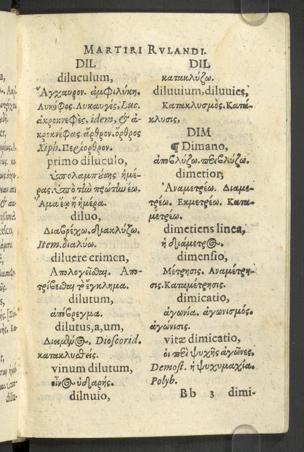 MARTIRI RVLANDI.
DIL
diluculum,
Ἄγχαυρον. ἀμφιλύκη.
Λυκόφος. Λυκαυγές, Luc.
ἀκροκνεφὲς, idem, & ἀ-
κροκνέφας. ἄρθρον. ὄρθρος
Περίορθρον.
primo diluculo,
ὑπολαμπούσης ἡμέ-
ρας. ὑπὸ τὴν πρώτην ἕω.
Ἅμα ἕῳ ἢ ἡμέρᾳ.
diluo,
Διαβρέχω. διακλύζω.
Item. διαλύω.
diluere crimen,
Ἀπολογεῖσθαι. Ἀπο-
τρίβεσθαι τὸ ἔγκλημα.
dilutum,
ἀπόβρεγμα.
dilutus, a, um,
Dioscorid.
κατακλυσθείς.
vinum dilutum,
οἶνος ὑδαρής.
dilnuio,
DIL
κατακλύζω.
diluuium, diluuies,
Κατακλυσμός. Κατά-
κλυσις.
DIM
¶ Dimano,
ἀποβλύζω. περιβλύζω.
dimetior,
Ἀναμετρέω. Διαμε-
τρέω. Ἐκμετρέω. Κατα-
μετρέω.
dimetiens linea,
ἡ διάμετρος.
dimensio,
Μέτρησις. Ἀναμέτρη-
σις. Καταμέτρησις.
dimicatio,
ἀγωνία. ἀγωνισμός.
ἀγώνισις.
vitæ dimicatio,
οἱ περὶ ψυχῆς ἀγῶνες,
Demost. ἡ ψυχομαχία.
Polyb.
Bb 3 dimi-